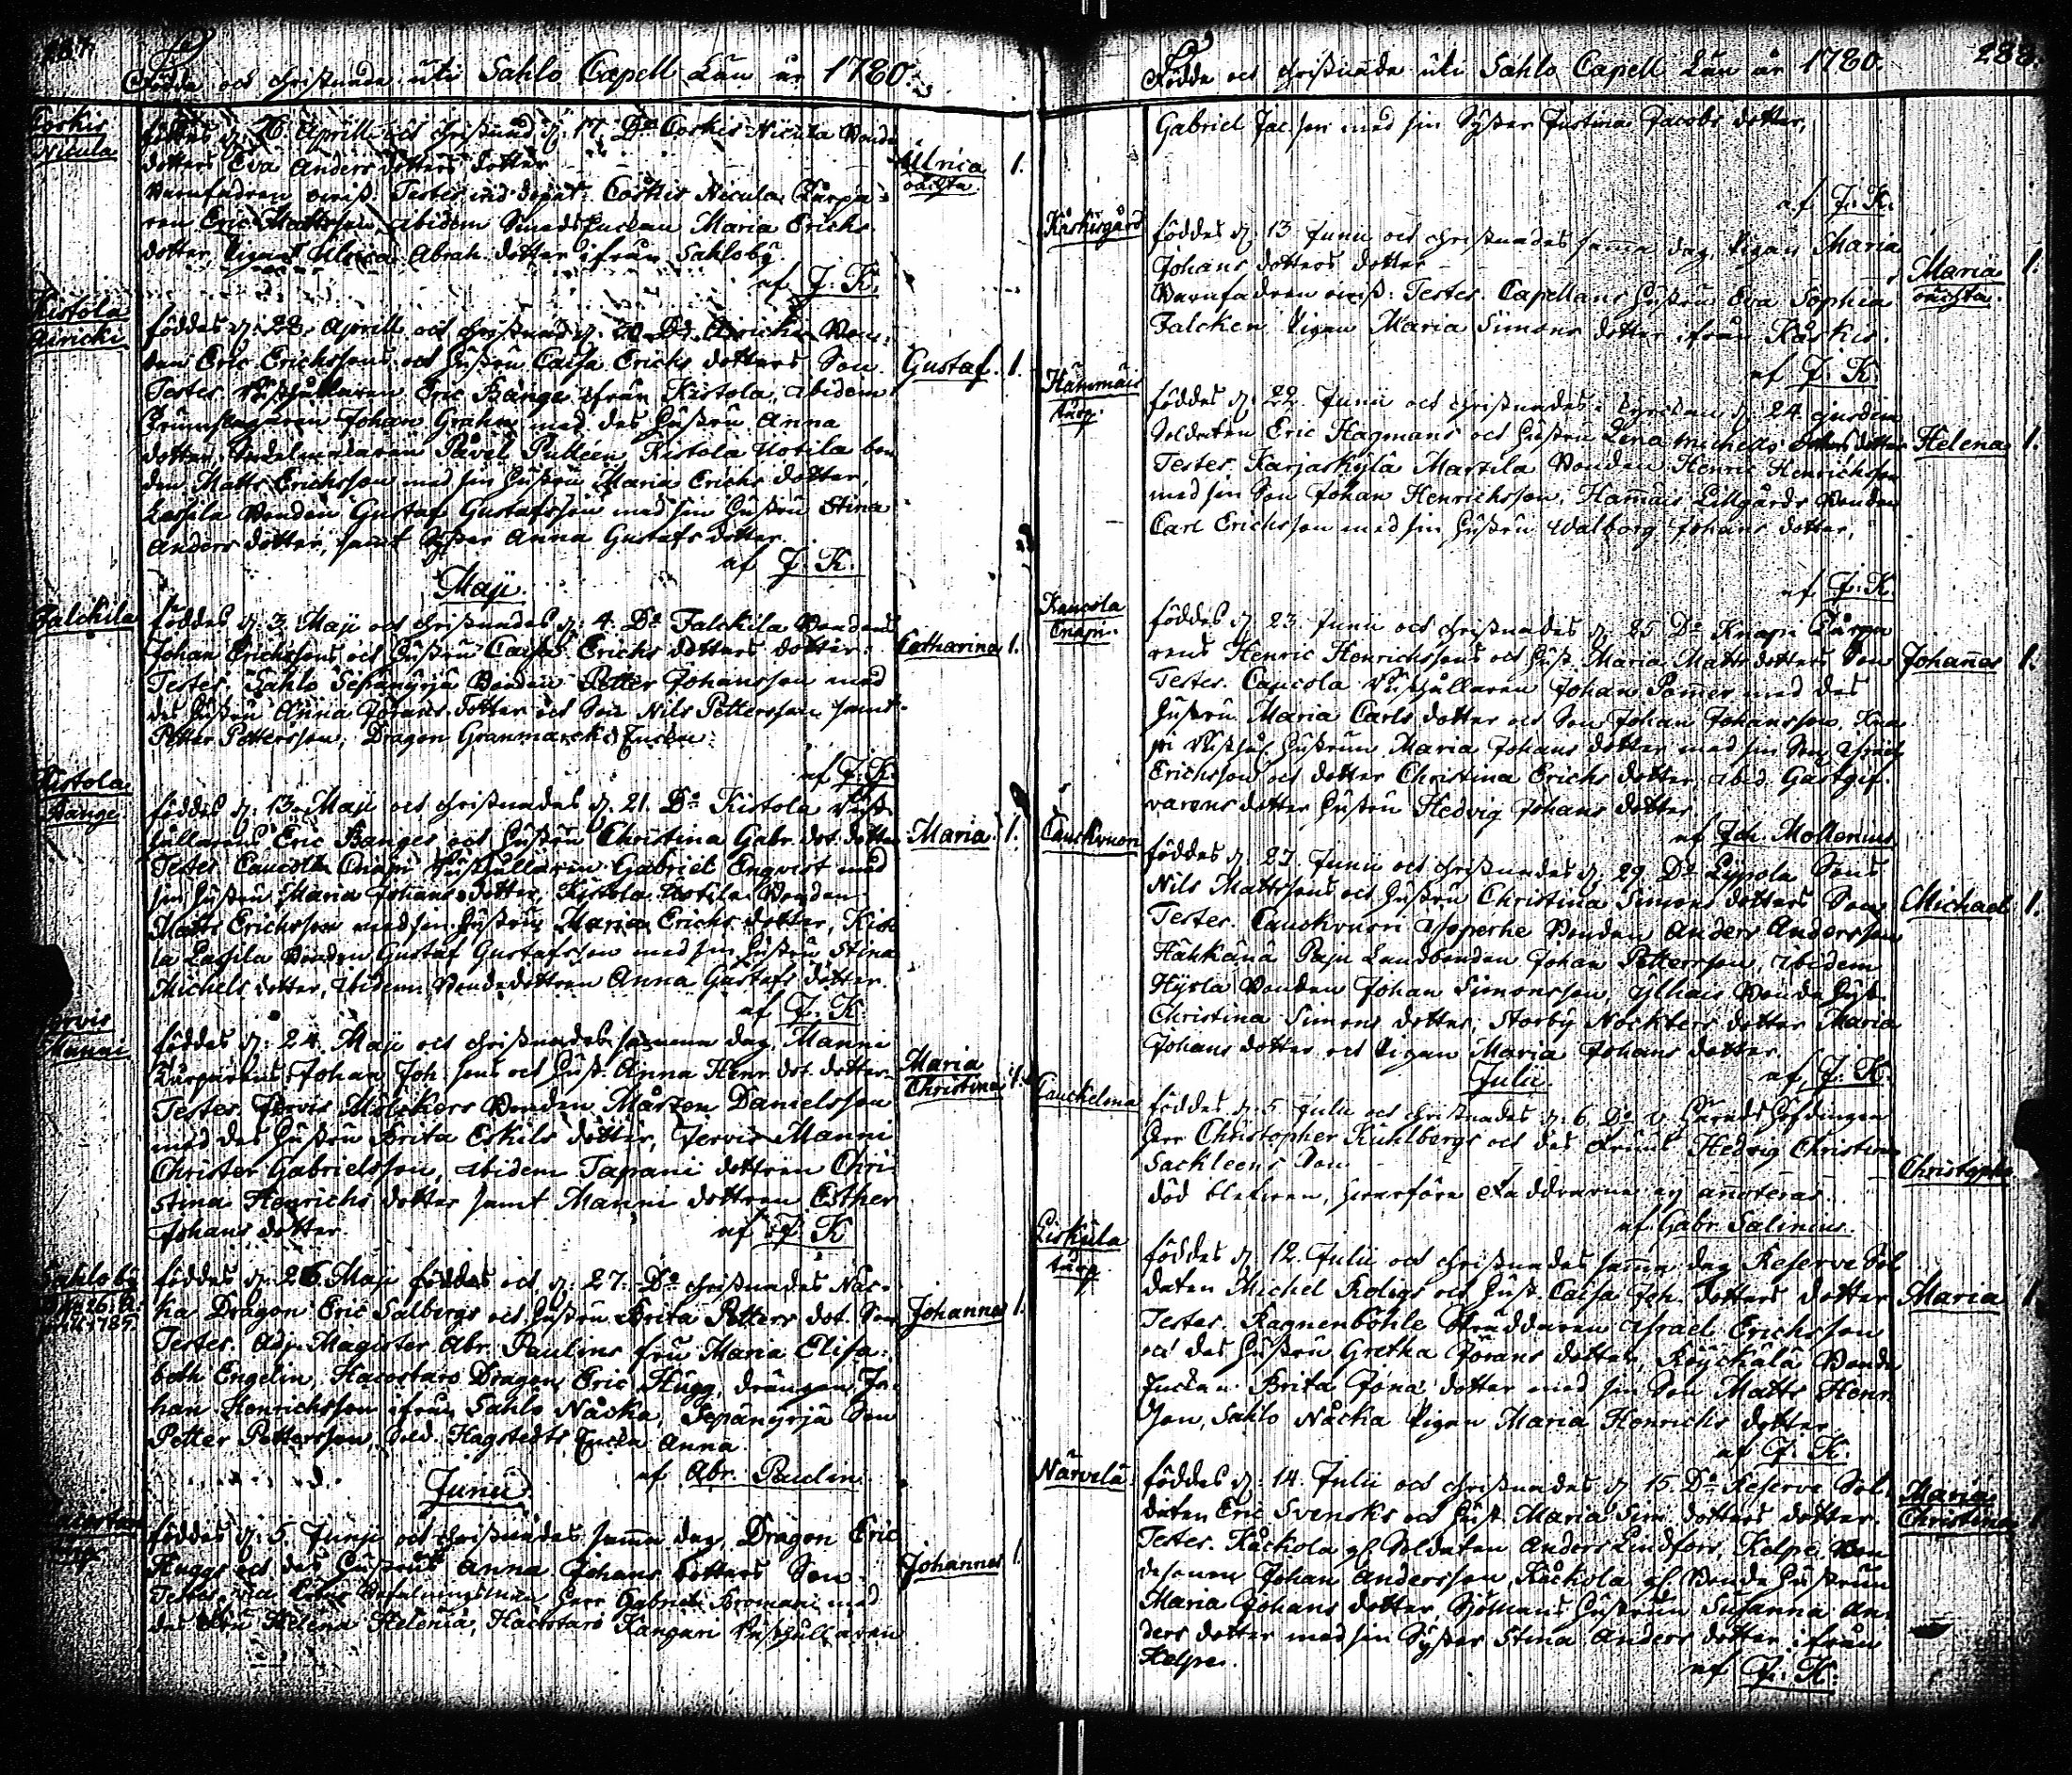 287.
Födde och christnade uti Sahlo Capell Län år 1780.
Coskis
Nicula
föddes d. 16 Aprill och christnad d. 17 Do Coskis Nicula Bonde
dotters Eva Anders dotters dotter
Barnfadren oviss. Testes Coskis Nicula Torpa-
ren Eric Mattsson, ibidem Smedsenckan Maria Erichs
dotter, Pigan Ulrica Abrah. dotter ifrån Sahloby.
af J. K.
Ulrica 1.
oächta
Kistola
Airicki
föddes d. 28. Aprill och christnad d. Do Airicki Bon-
dens Eric Erichssons och hustru Caisa Erichs dotters Son
Testes Rusthållaren Eric Bange ifrån Kistola, ibidem
Trumslagaren Johan Grahn med des Hustru Anna
dotter, Sadelmakaren Påvel Pulleen, Kistola Uotila bon
den Matts Erichsson med sin Hustru Maria Erichs dotter,
Lassila Bonden Gustaf Gustafsson med sin hustru Stina
Anders dotter, samt Syster Anna Gustafs dotter.
af J. K.
Gustaf. 1.
Maji
Falckila
föddes d. 3. Maji och christnades d. 4. Do Falckila Bondens
Johan Erichssons och hustru Caisa Erichs dotters dotter.
Testes Sahlo Sepänyrjä Bonden Petter Johansson med
des hustru Anna Jörans dotter och Son Nils Pettersson samt
Petter Pettersson, Dragon Granmarcks Encka.
af J. K.
Catharina 1.
Kistola
Bange
föddes d. 13. Maji och christnades d. 21. Do Kistola Rust-
hållarens Eric Banges och hustru Christina Gabr. dot. dotter
Testes Caucola Cnapi Rusthållaren Gabriel Enqvist med
sin hustru Maria Johans dotter, Kistola Uotila Bonden
Matts Erichsson med sin hustru Maria Erichs dotter, Kisto
la Lassila Bonden Gustaf Gustafsson med sin hustru Stina
Michels dotter, ibidem Bondedottren Anna Gustafs dotter.
af J. K.
Maria 1.
Jervis
Manni
föddes d. 24. Maji och christnades samma dag, Manni
Torparens Johan Joh. sons och Hust. Anna Henr. dot. dotter.
Testes Jervis Mälckers Bonden Mårten Danielsson
med des hustru Brita Eskils dotter, Jervis Manni
Christer Gabrielsson, ibidem Tapani dottren Chri-
stina Henrichs dotter samt Manni dottren Esther
Johans dotter
af J. K.
Maria
Christina 1.
Sahloby
föddes d. 26. Maji föddes och d. 27. Do christnades Näc-
ka Dragon Eric Salbergs och hustru Brita Petters dot. Son
Testes. Adj. Magister Abr. Paulins fru Maria Elisa-
beth Engelin, Hacostaro Dragon Eric Hugg, drängen Jo-
han Henrichsson ifrån Sahlo Näcka, Sepänyrjä Son
Petter Pettersson, Sold. Hagstedts Encka Anna.
af Abr. Paulin
Johannes 1.
Junii
föddes d. 5. Junji och christnades samma dag, Dragon Eric
Huggs och des Hustrus Anna Johans dotters Son
Testes Befalningsman Herr Gabriel Bromani med
des Fru Helena Helenia, Hacostaro Kangari Rusthållaren
Johannes 1.
288.
Födde och christnade uti Sahlo Capell Län år 1780.
Gabriel Jac. son med sin Syster Justina Jacobs dotter,
af J. K.
Kåskisgård
föddes d. 13 Junii och christnades samma dag, Pigan Maria
Johans dotters dotter
Barnfadren oviss. Testes. Capellans hustru Eva Sophia
Falcken, Pigan Maria Simons dotter ifrån Kåskis.
af J. K.
Maria 1.
oächta.
Hämmäis
torp.
föddes d. 22. Junii och christnades i kyrckan d. 24. ejusdem
Soldaten Eric Hagmans och hustru Lena Michels dotters dotter
Testes. Karjaskylä Marttila Bonden Henric Henrichsson
med sin Son Johan Henrichsson, Hämmäis Lillgårds Bonden
Carl Erichsson med sin hustru Walborg Johans dotter,
af J. K.
Helena 1.
Kaucola
Cnapi.
föddes d. 23. Junii och christnades d. 25 Do Knapi Torpa
rens Henric Henrichssons och Hust. Maria Matts dotters Son
Testes. Caucola Rusthållaren Johan Pomer med des
hustru Maria Carls dotter och Son Johan Johansson, Kna
pi Rusthåls hustrun Maria Johans dotter med sin Son Israel
Erichsson och dotter Christina Erichs dotter, ibid. Gästgif-
varens dotter hustru Hedvig Johans dotter
af Joh. Mollenius
Johannes 1.
Cauckvuori
föddes d. 27. Junii och christnades d. 29 Do Lyypola Sons
Nils Mattssons och hustru Christina Simons dotters Son
Testes. Cauckvuori Isoperhe Bonden Anders Andersson
Hähkänä Paju Landbonden Johan Pettersson, ibidem
Hyrla Bonden Johan Simonsson, Ylhais Bonde Hust.
Christina Simons dotter, Storby Nockters dotter Maria
Johans dotter och Pigan Maria Johans dotter.
af J. K.
Michael 1.
Julii
Cauckelma
föddes d. 5 Julii och christnades d. 6 Do V. Häradshöfdingen
Herr Christopher Kuhlbergs och des Frus Hedvig Christina
Sackleens Son
död blefven, hvarföre Faddrarne ej annoteras.
af Gabr. Salinius.
Christopher
Liskula
torp
föddes d. 12. Julii och christnades samma dag Reserve Sol
daten Michel Roligs och Hust. Caisa Joh. dotters dotter
Testes. Ragnenböhle Skräddaren Israel Erichsson
och des hustru Gretha Jörans dotter, Röyckälä Bonde
Enckan Brita Jona dotter med sin Son Matts Henr.
Son, Sahlo Näcka Pigan Maria Henrichs dotter
af J. K.
Maria 1.
Närvelä
föddes d. 14. Julii och christnades d. 15 Do Reserve Sol-
daten Eric Svensks och Hust. Maria Sim. dotters dotter.
Testes. Kåckola gl. Soldaten Anders Lindfors, Kelpe Bon
desonen Johan Andersson, Kåckola gl. Bonde hustrun
Maria Johans dotter, Sjömans hustrun Susanna An-
ders dotter med sin Syster Stina Anders dotter ifrån
Helpe.
af J. K.
Maria
Christina 1